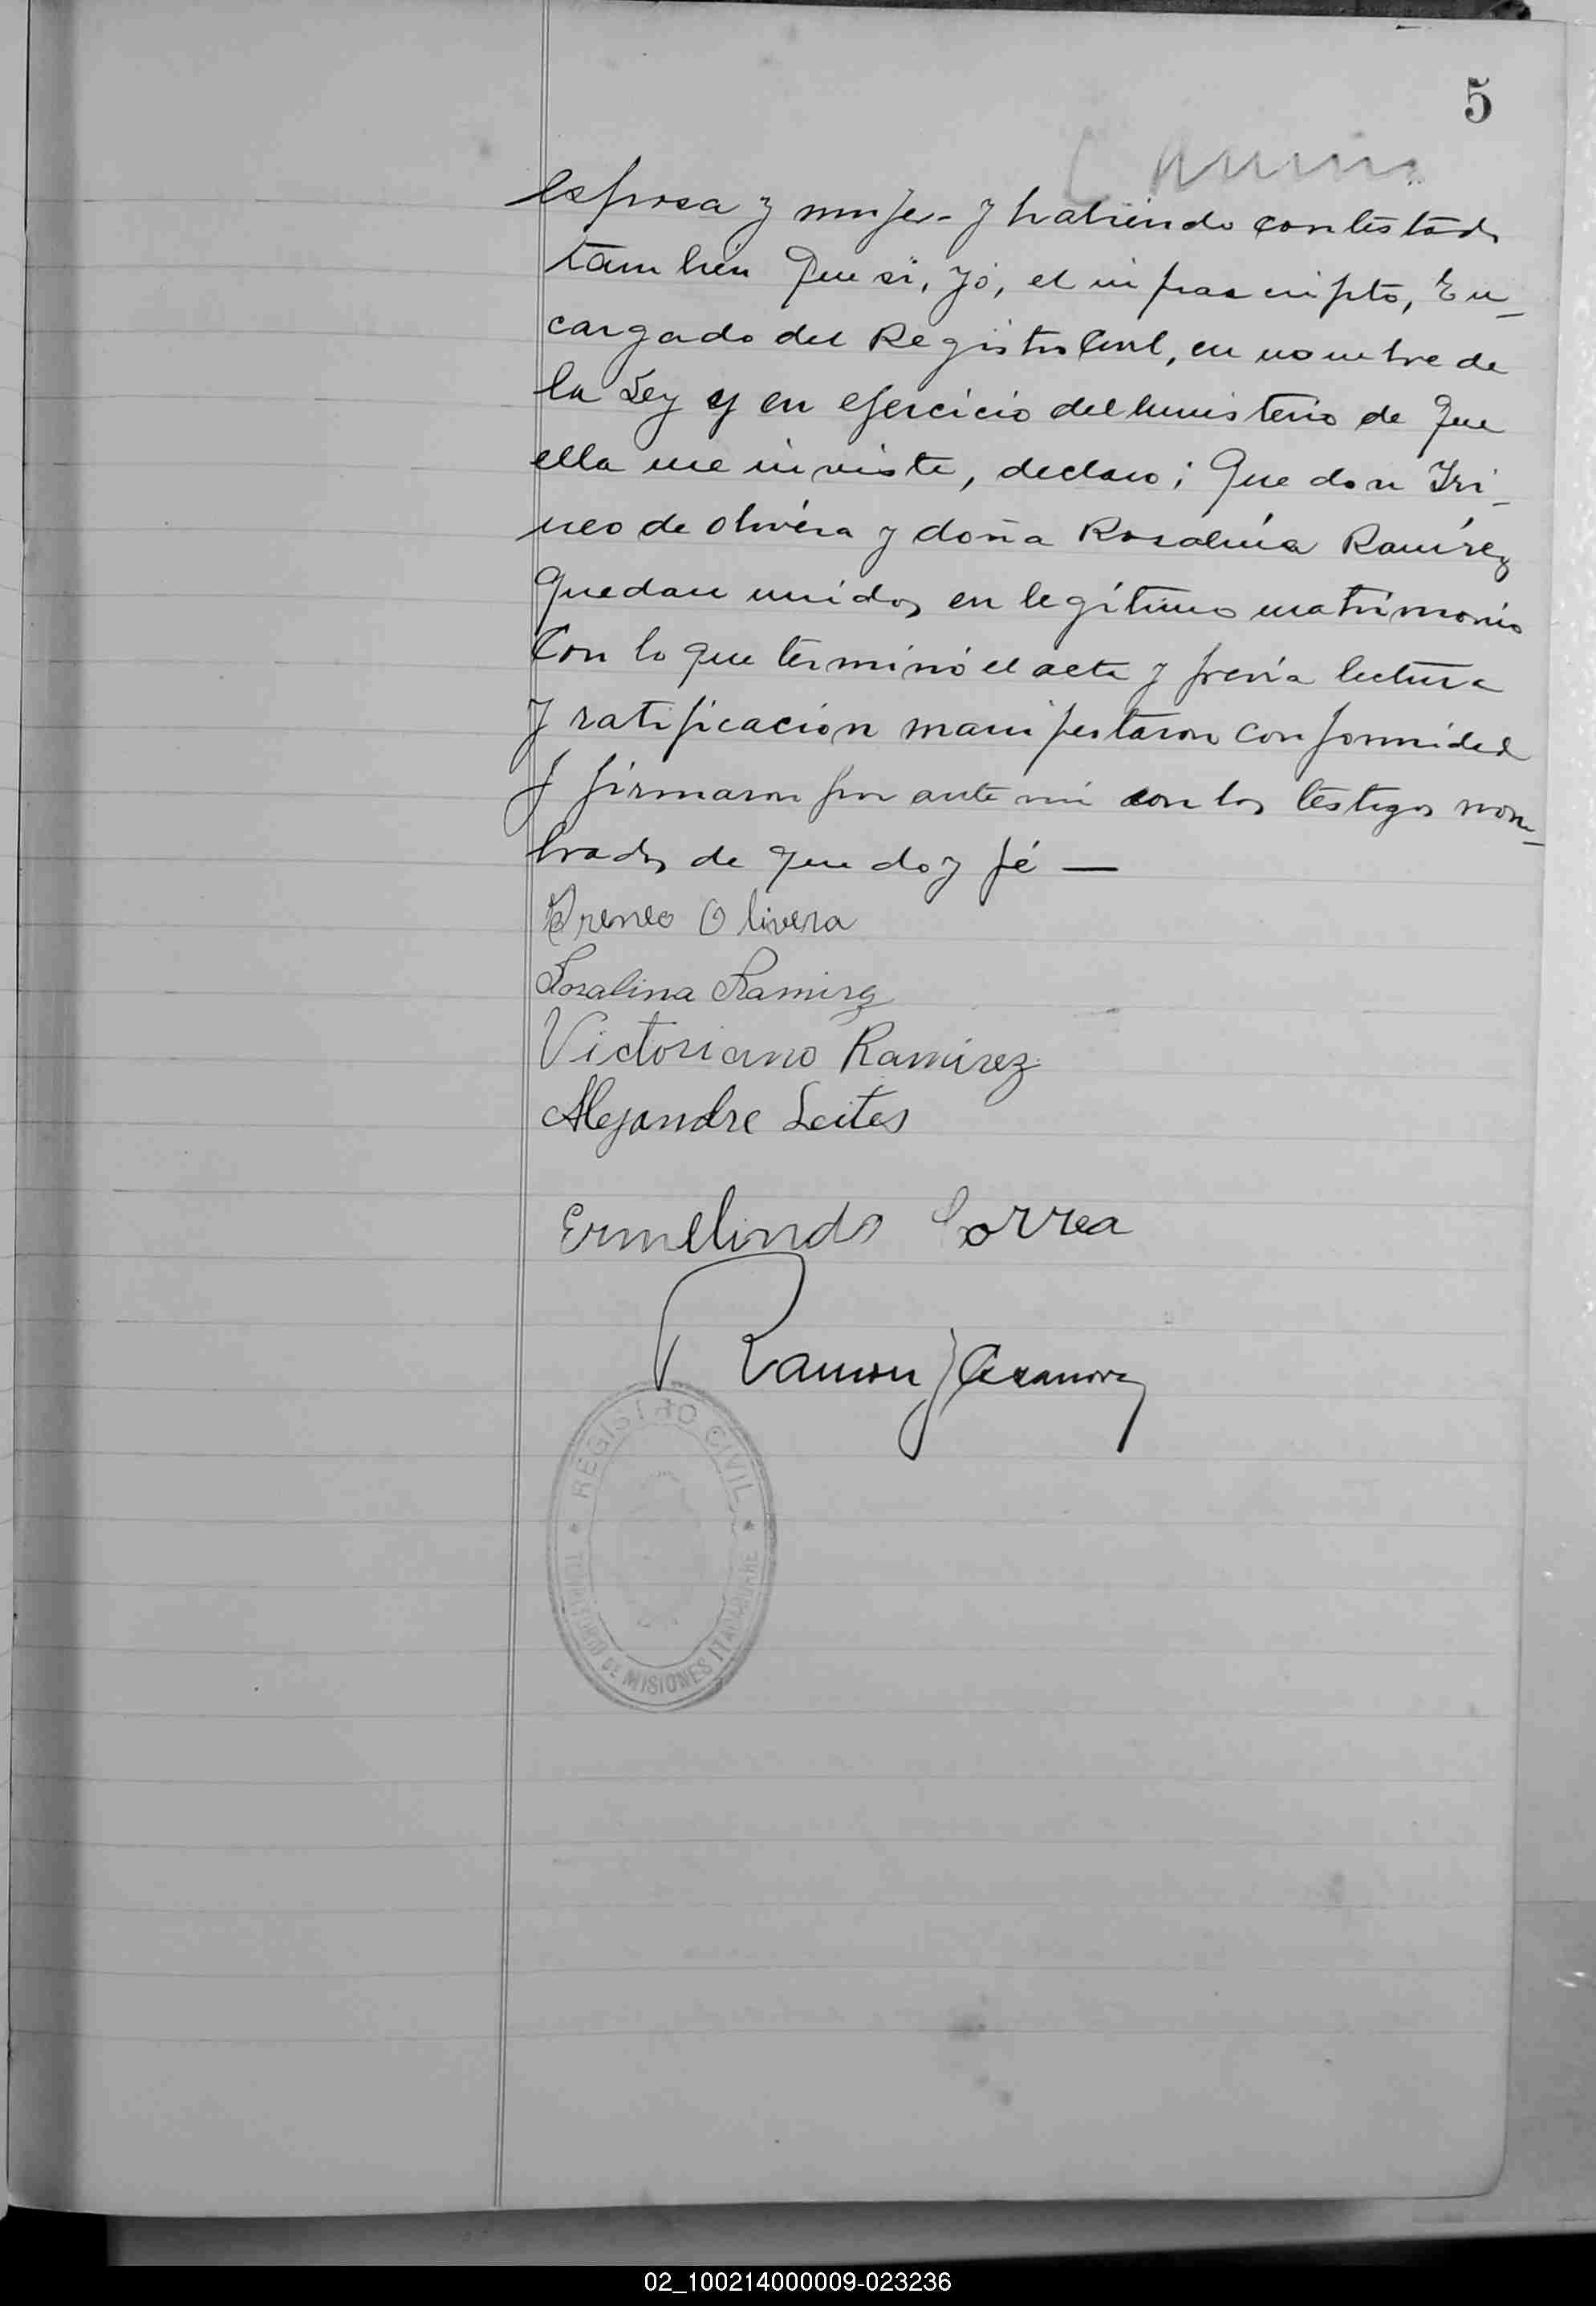 5
esposa y mujer - y habiendo contestado
tambien que si, yó, el infrascripto, En-
cargado del Registro Civil, en nombre de
la Ley y en ejercicio del ministerio de que
ella me inviste, declaro; Que don Iri-
neo de Olivéra y doña Rosalina Ramírez
quedan unidos en legítimo matrimonio
Con lo que terminó el acta y previa lectura
y ratificación manifestaron conformidad
y firmaron por ante mi con los testigos nom-
brados de que doy fé —
Ireneo Olivera
Rosalina Ramirez
Victoriano Ramirez
Alejandre Leites
Ermelindo Correa
Ramon J Casanova
REGISTRO CIVIL
TERRITORIO DE MISIONES ITACARUARE
02_100214000009-023236